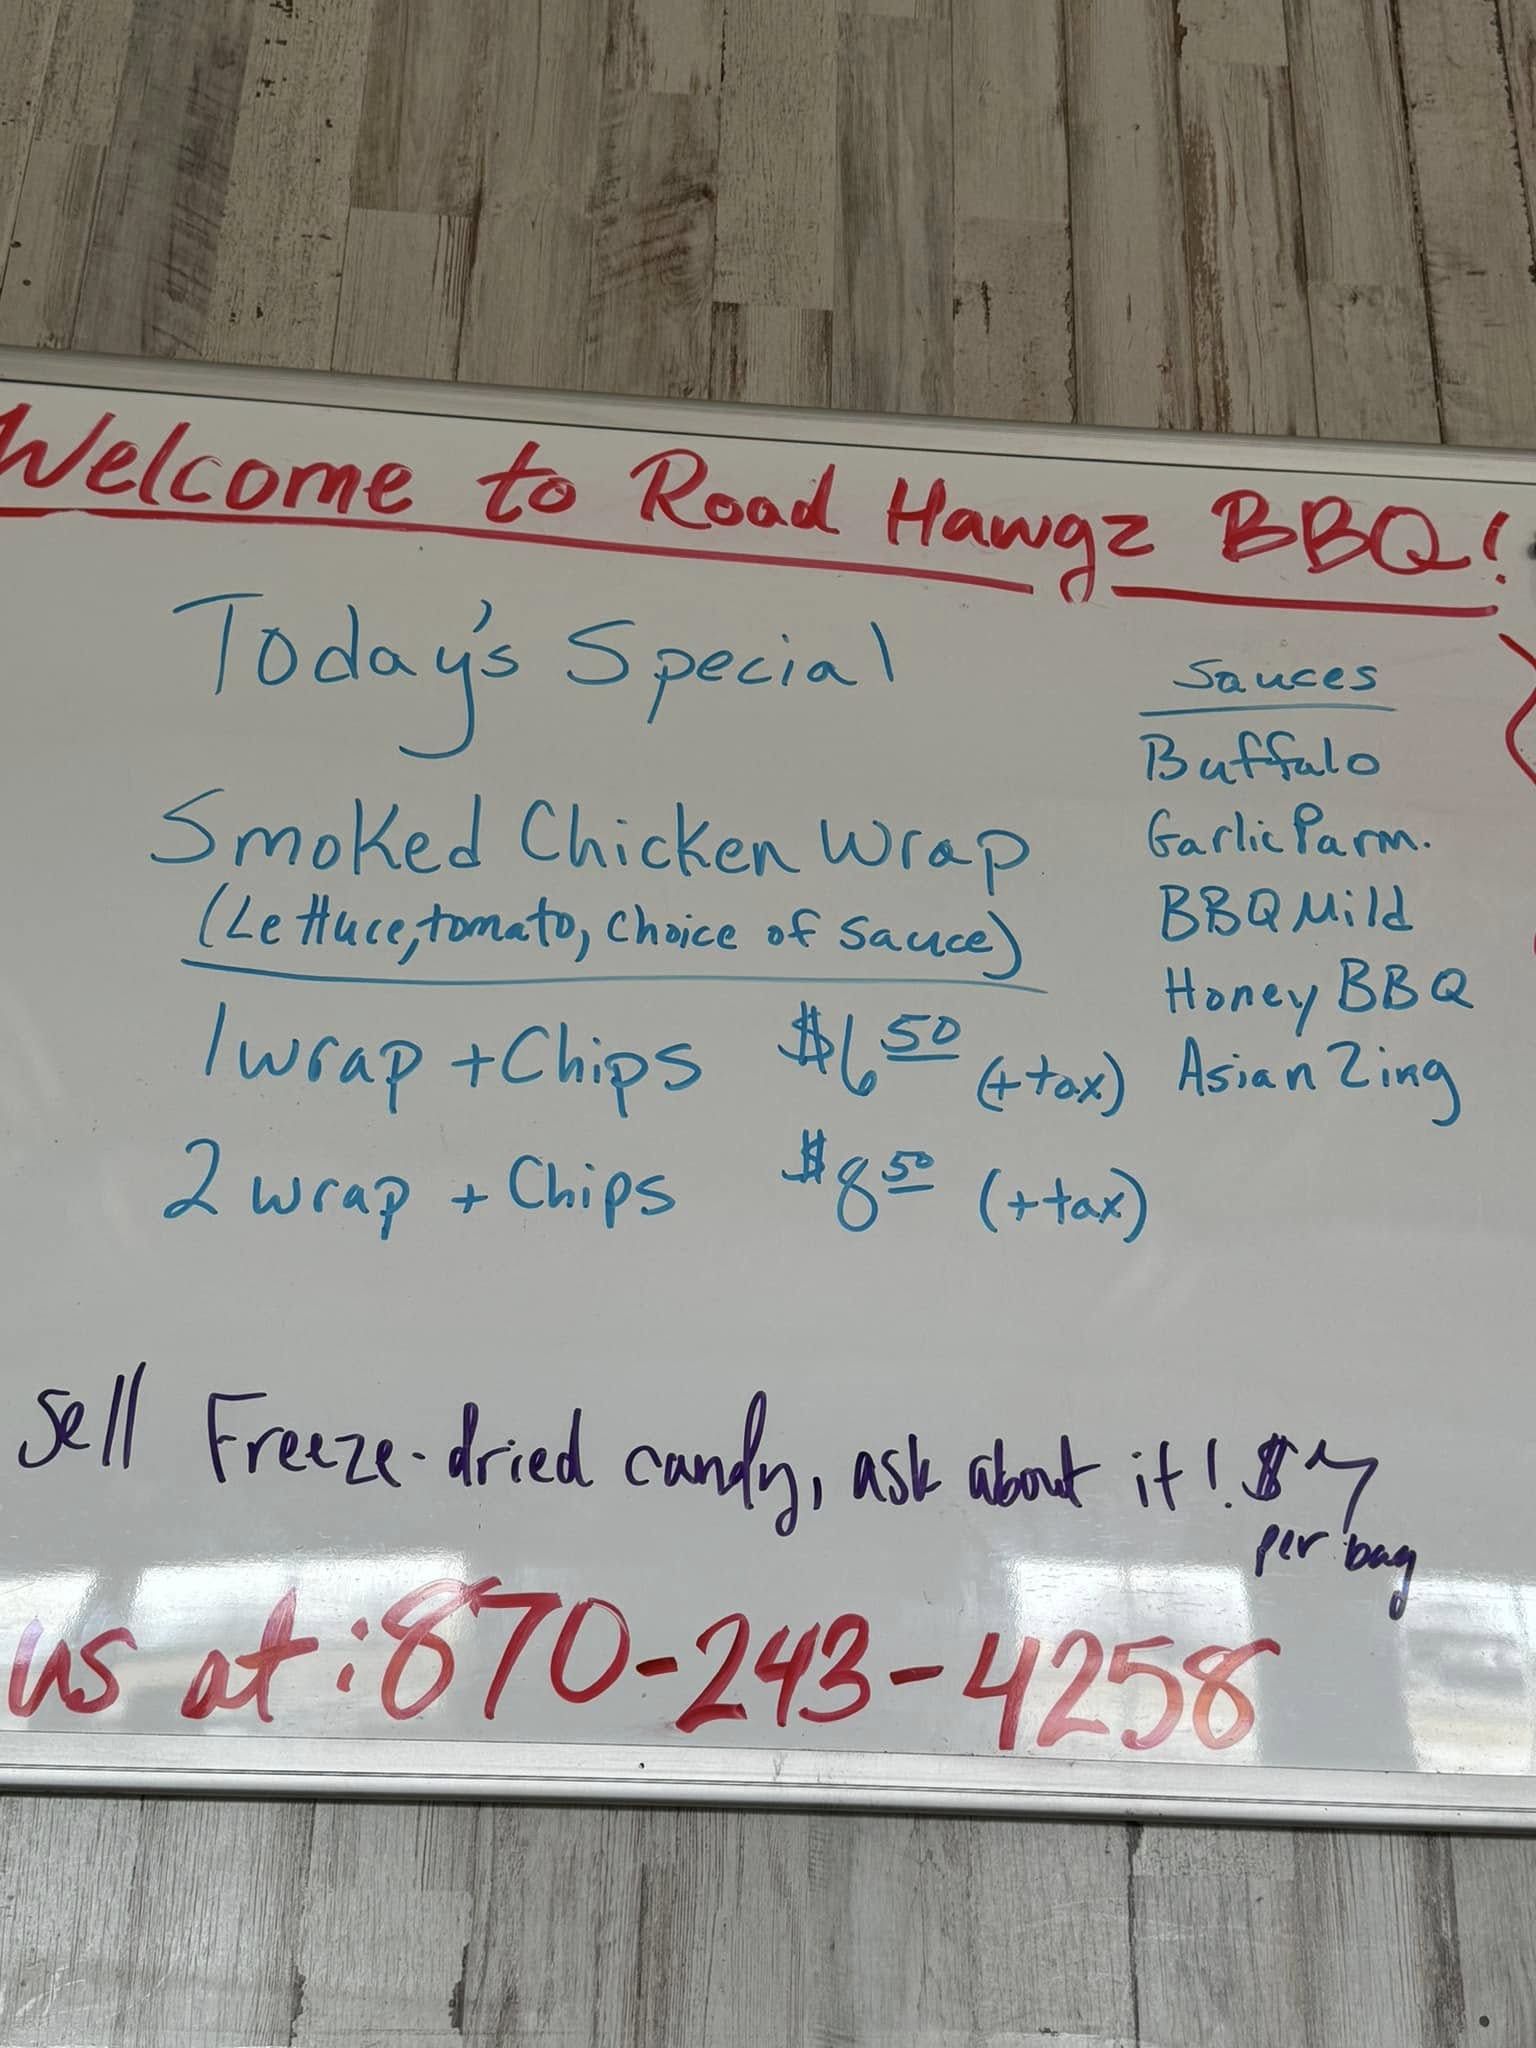 Welcome to Road Hawgz BBQ!
Today's Special
Smoked Chicken Wrap
(Lettuce, tomato, Choice of Sauce)
1 wrap + Chips $6 50 (+ tax)
2 wrap + Chips $8 50 (+ tax)
Sauces
Buffalo
Garlic Parm.
BBQ Mild
Honey BBQ
Asian Zing
Sell Freeze-dried candy, ask about it! $7
per bag
us at: 870-243-4258